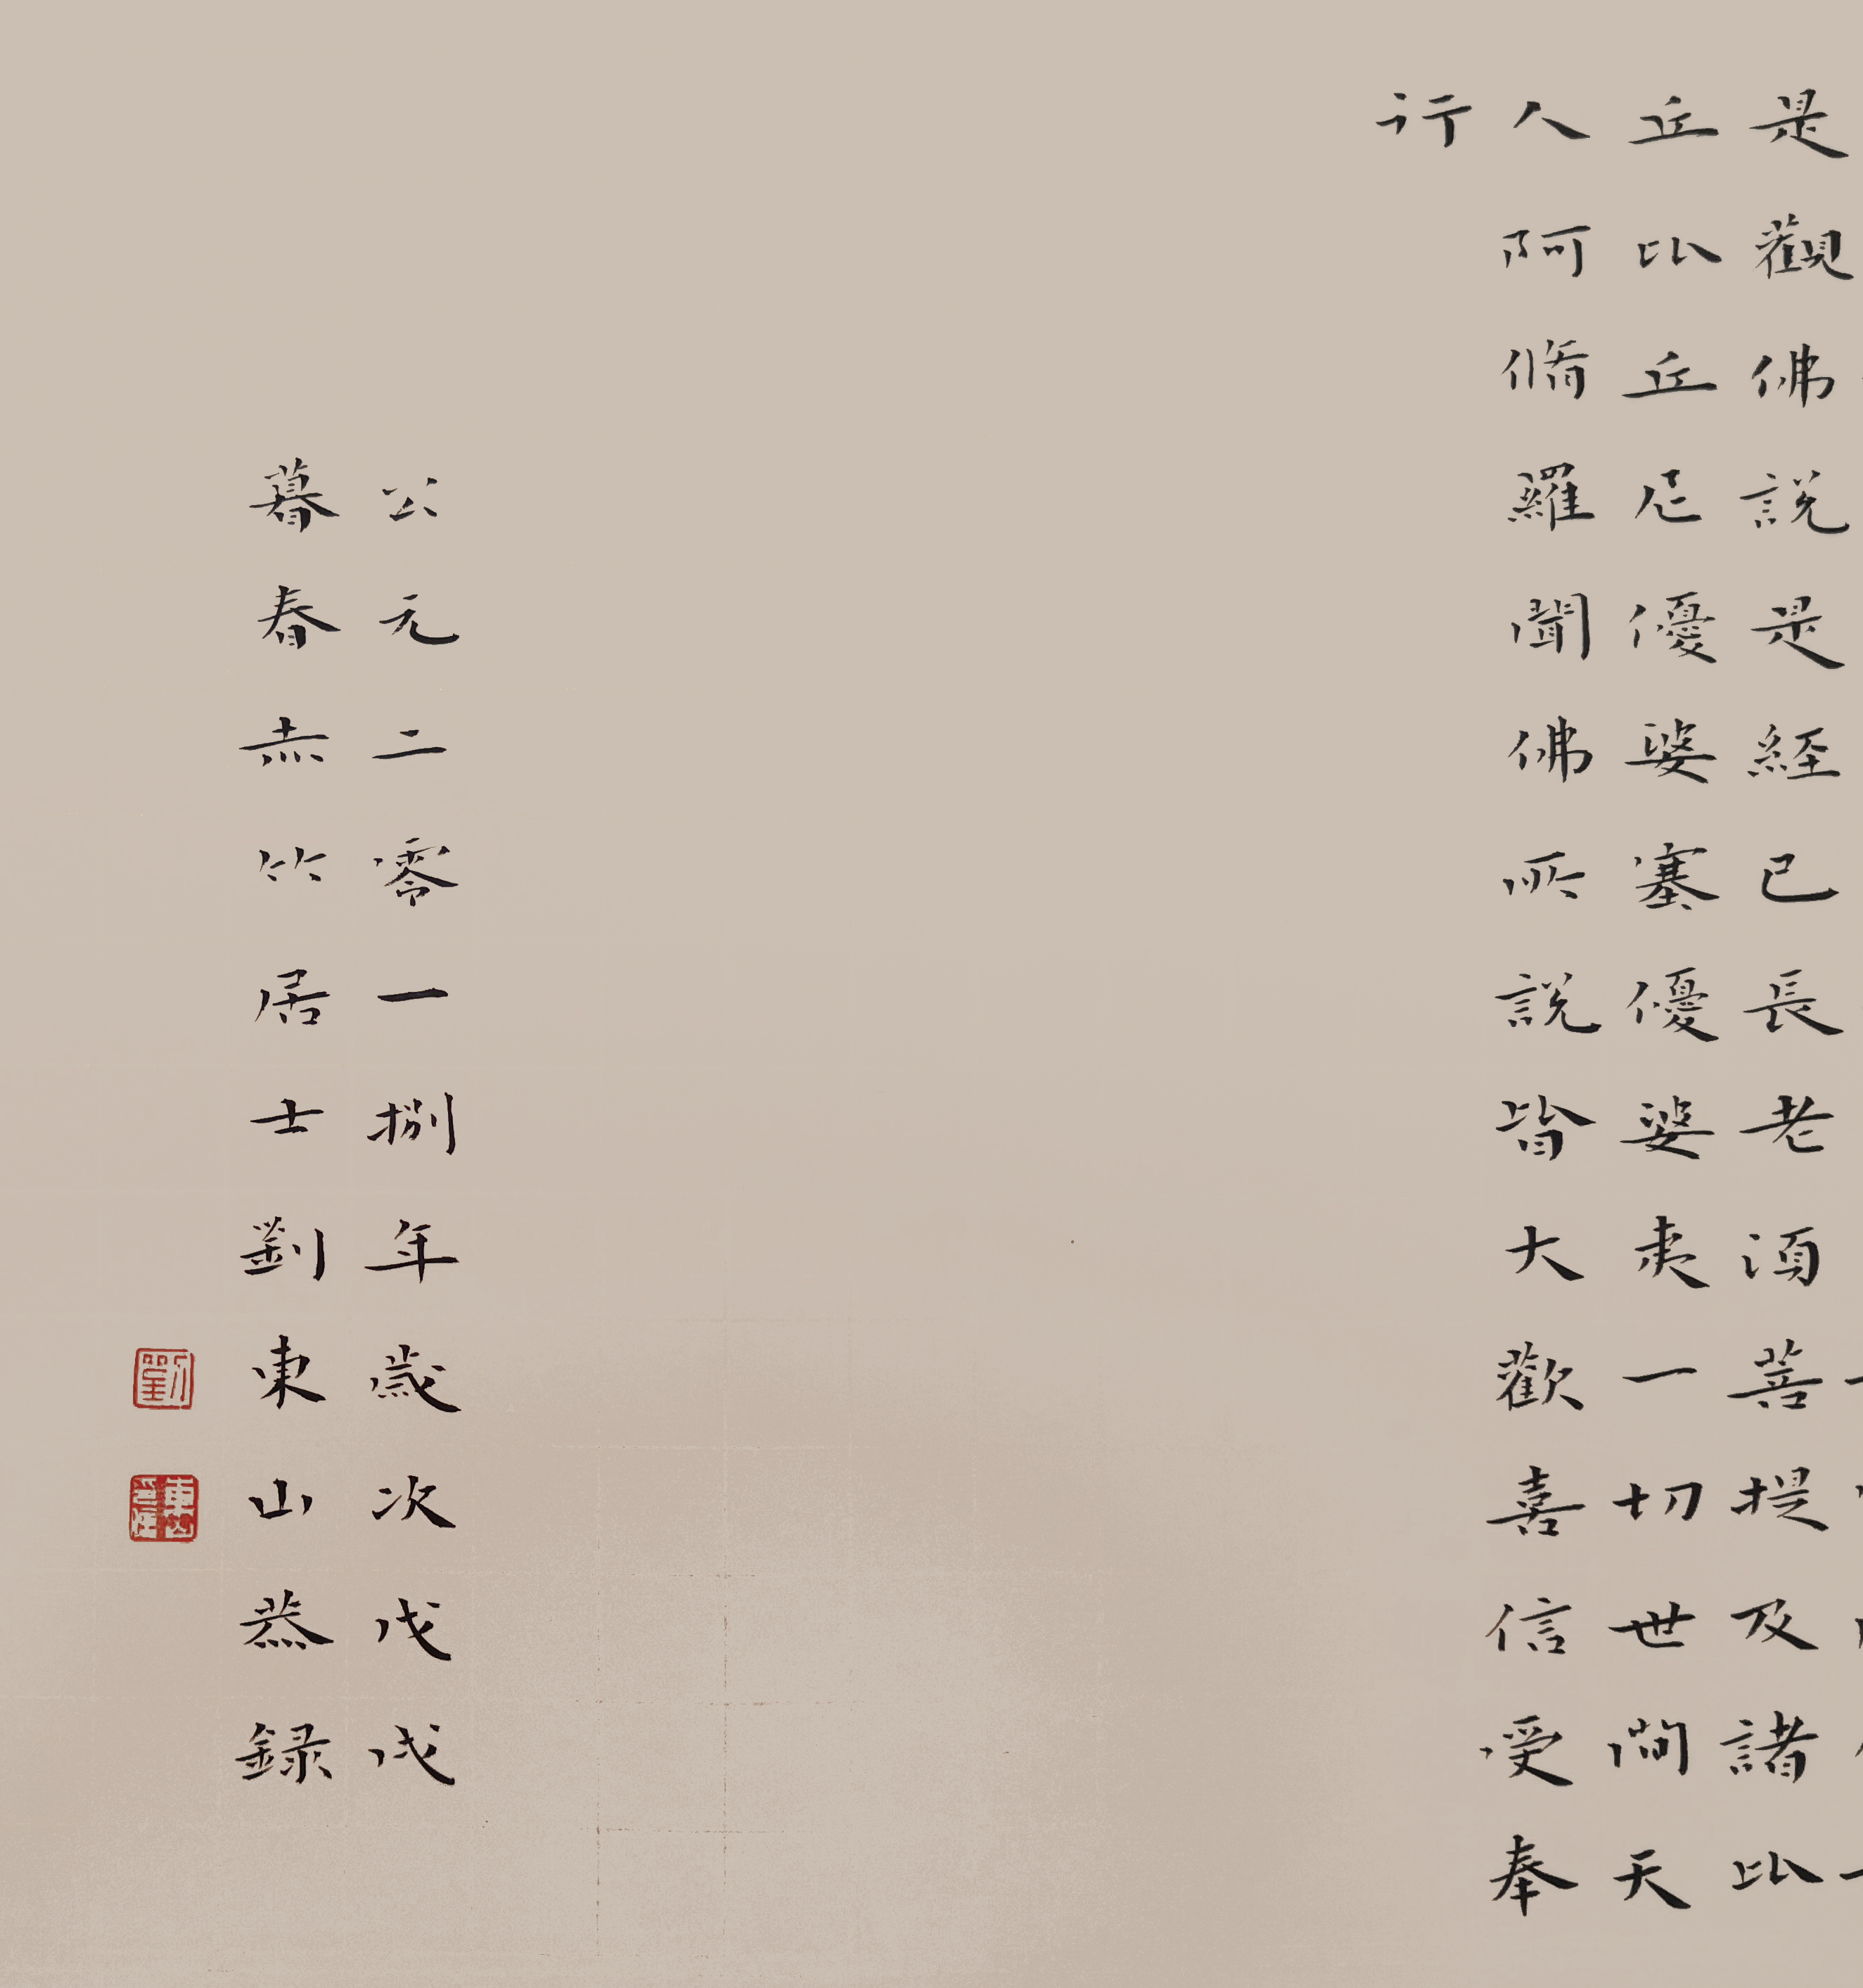 是觀佛說是經已長老湏菩提及諸比
丘比丘尼優婆塞優婆夷一切世間天
人阿脩羅聞佛所說皆大歡喜信受奉
行
公元二零一捌年歲次戊戌
暮春
竹居士劉東山恭録
劉
東山